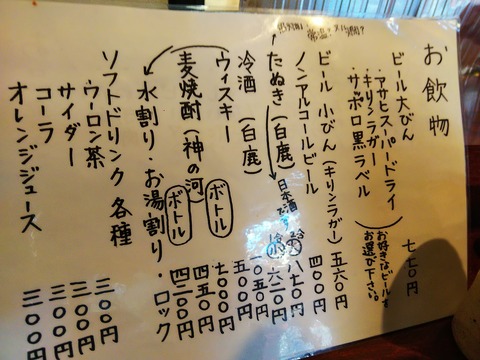 常温?ヌル燗?
お飲物
ビール大びん 七七〇円
・アサヒスーパードライ
・キリンラガー
・サッポロ黒ラベル
お好きなビールを
お選び下さい。
ビール 小びん(キリンラガー)五六〇円
ノンアルコールビール 四〇〇円
たぬき(白鹿) 日本酒です 2合 大 八七〇円
1合 小 六二〇円
冷酒(白鹿) 一〇五〇円
ウィスキー 五〇〇円
ボトル
麦焼酎(神の河)
ボトル 四二〇〇円
水割り・お湯割り・ロック
ソフトドリンク各種
・ウーロン茶 三〇〇円
サイダー 三〇〇円
コーラ 三〇〇円
オレンジジュース 三〇〇円